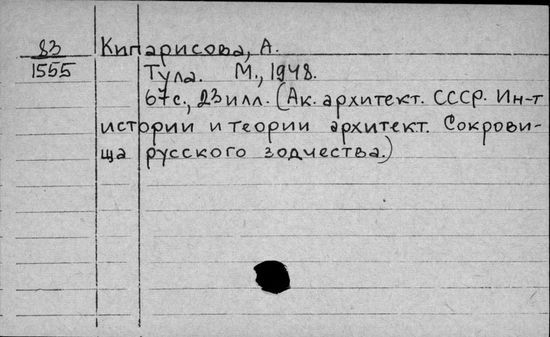 83 Кипарисова, А.
1555 Тула. М., 1948.
67с., 23илл. (Ак. архитект. СССР. Ин-т
истории и теории архитект. Сокрови-
ща русского зодчества.)